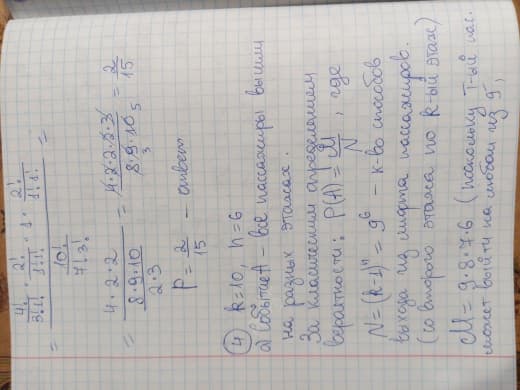 = 4!/3!1! · 2!/1!1! · 1 · 2!/1!1! / 10!/7!3! =
= 4·2·2 / 8·9·10/2·3 = 4·2·2·2·3 / 8·9·10 3 5 = 2/15
P = 2/15 – ответ
④ k=10, n=6
а) Событие A – все пассажиры вышли
на разных этажах.
За класическим определением
вероятности: P(A) = M/N, где
N = (k-1)ⁿ = 9⁶ – к-во способов
выхода из лифта пассажиров.
(со второго этажа по k-ый этаж)
M = 9·8·7·6 (поскольку I-ый пас.
может выйти на любом из 9,